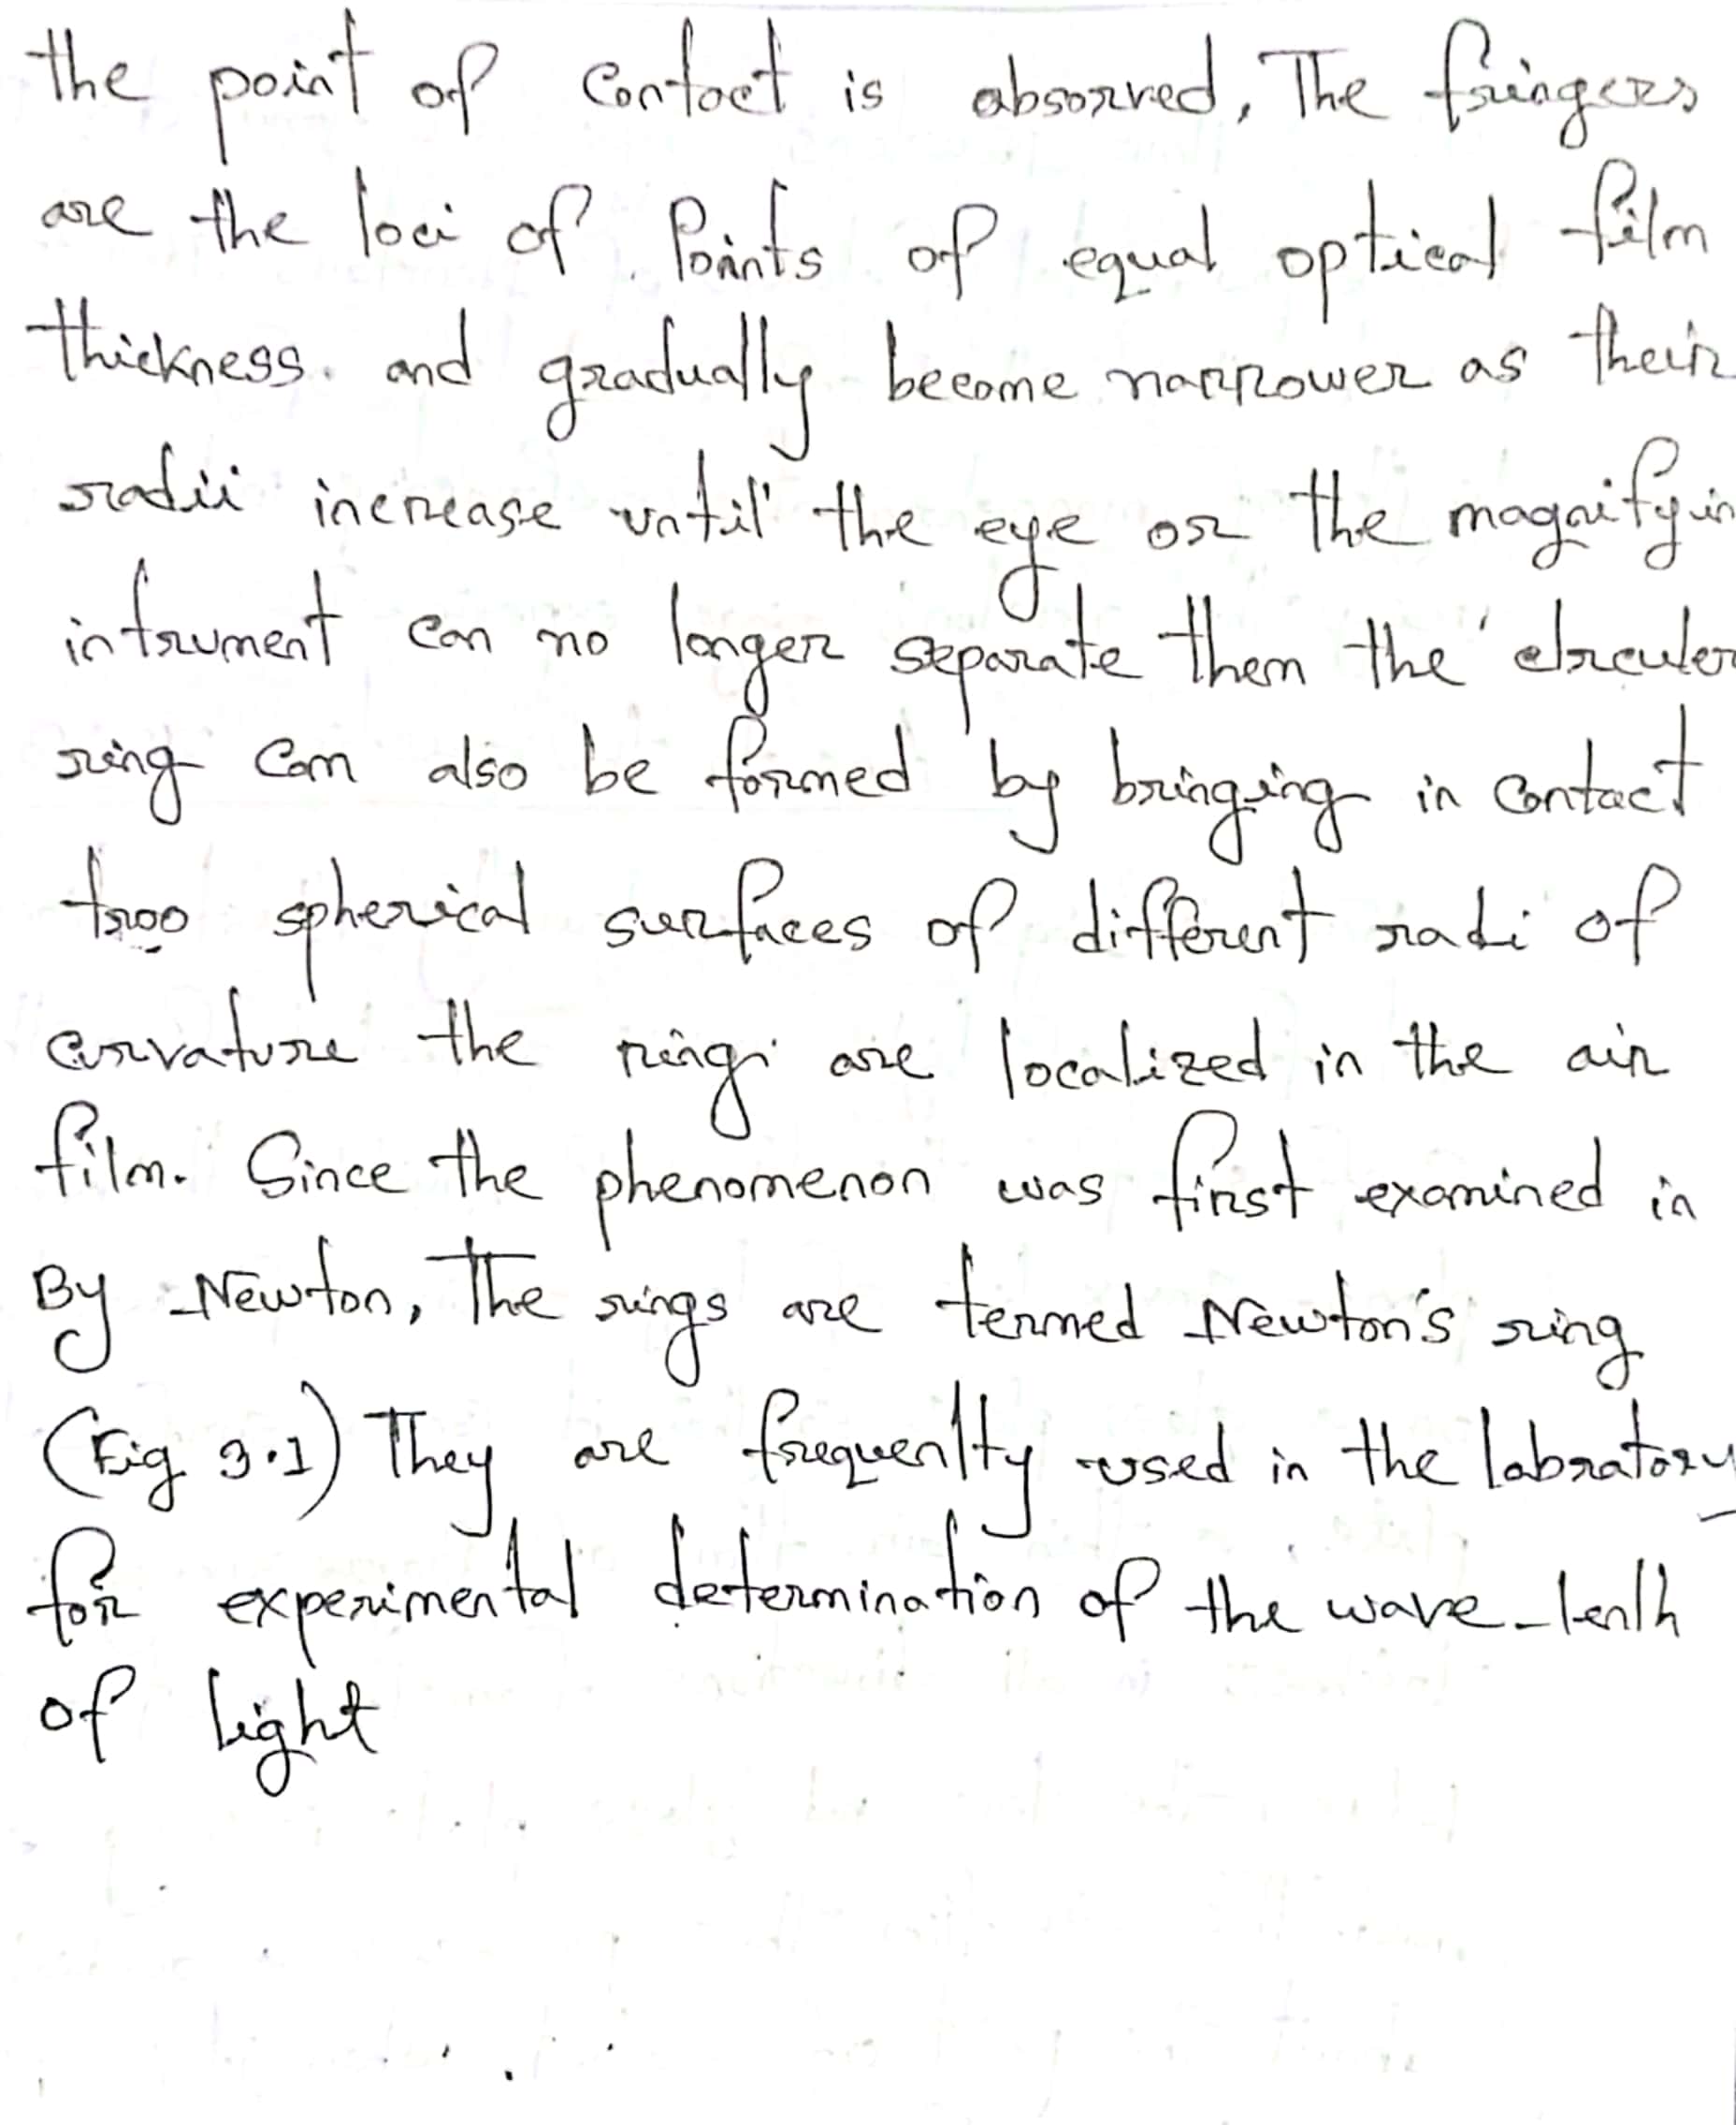 the point of Contact is absorved, The fringers
are the loci of Points of equal optical film
thickness. and gradually become narrower as their
radii increase until the eye or the magnifyin
intrument can no longer separate them the circuler
ring can also be formed by bringing in Contact
two spherical surfaces of different radi of
curvature the ring are localized in the air
film. Since the phenomenon was first examined in
By Newton, The rings are termed Newton's ring
(Fig 3.1) They are frequenlty used in the labratory
for experimental determination of the wave-lenth
of light